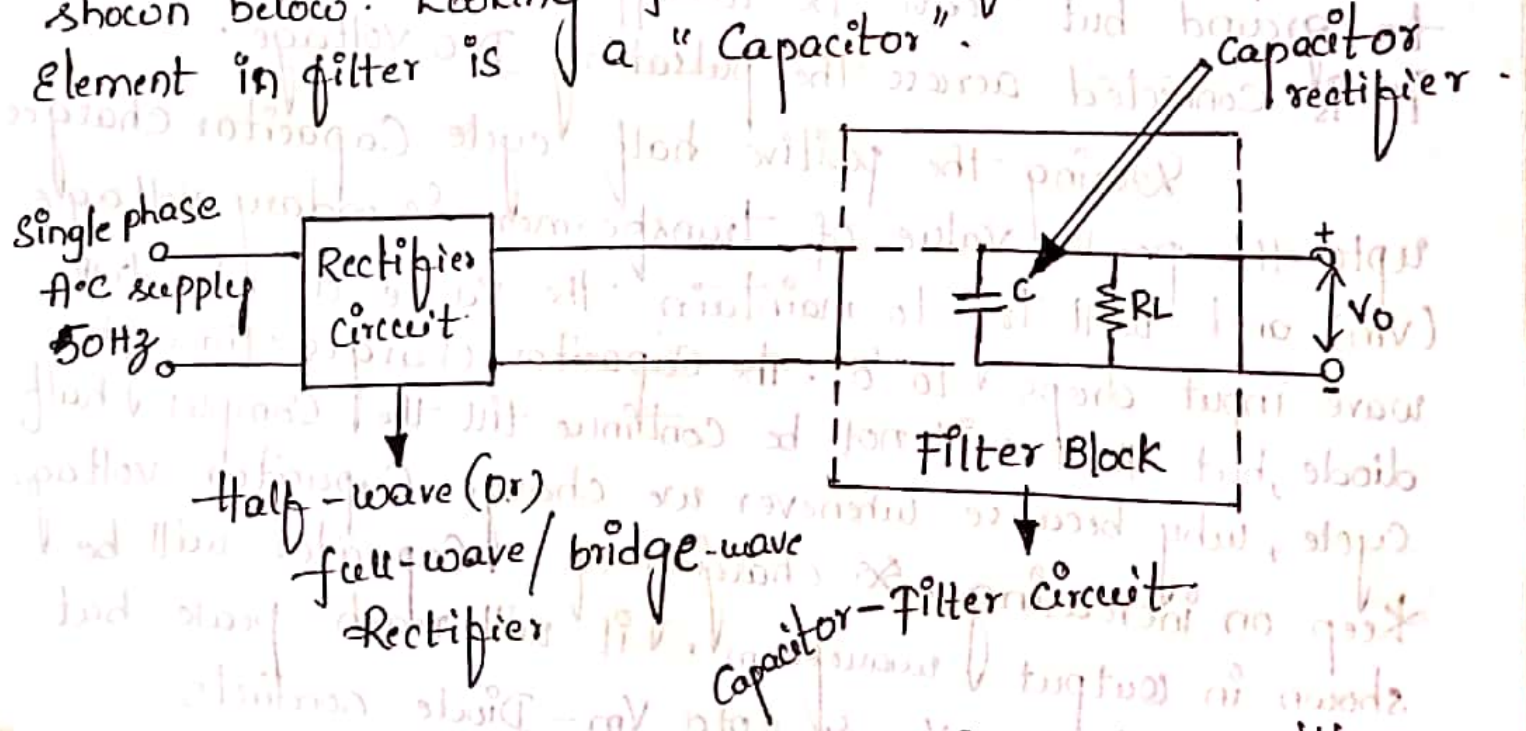 shown below. Looking
Element in filter is a "Capacitor".
Capacitor
rectifier.
Single phase
A.C supply
50Hz
Rectifier
Circuit
C
RL
+
Vo
-
Filter Block
Half-wave (or)
full-wave/bridge-wave
Rectifier
Capacitor-Filter Circuit